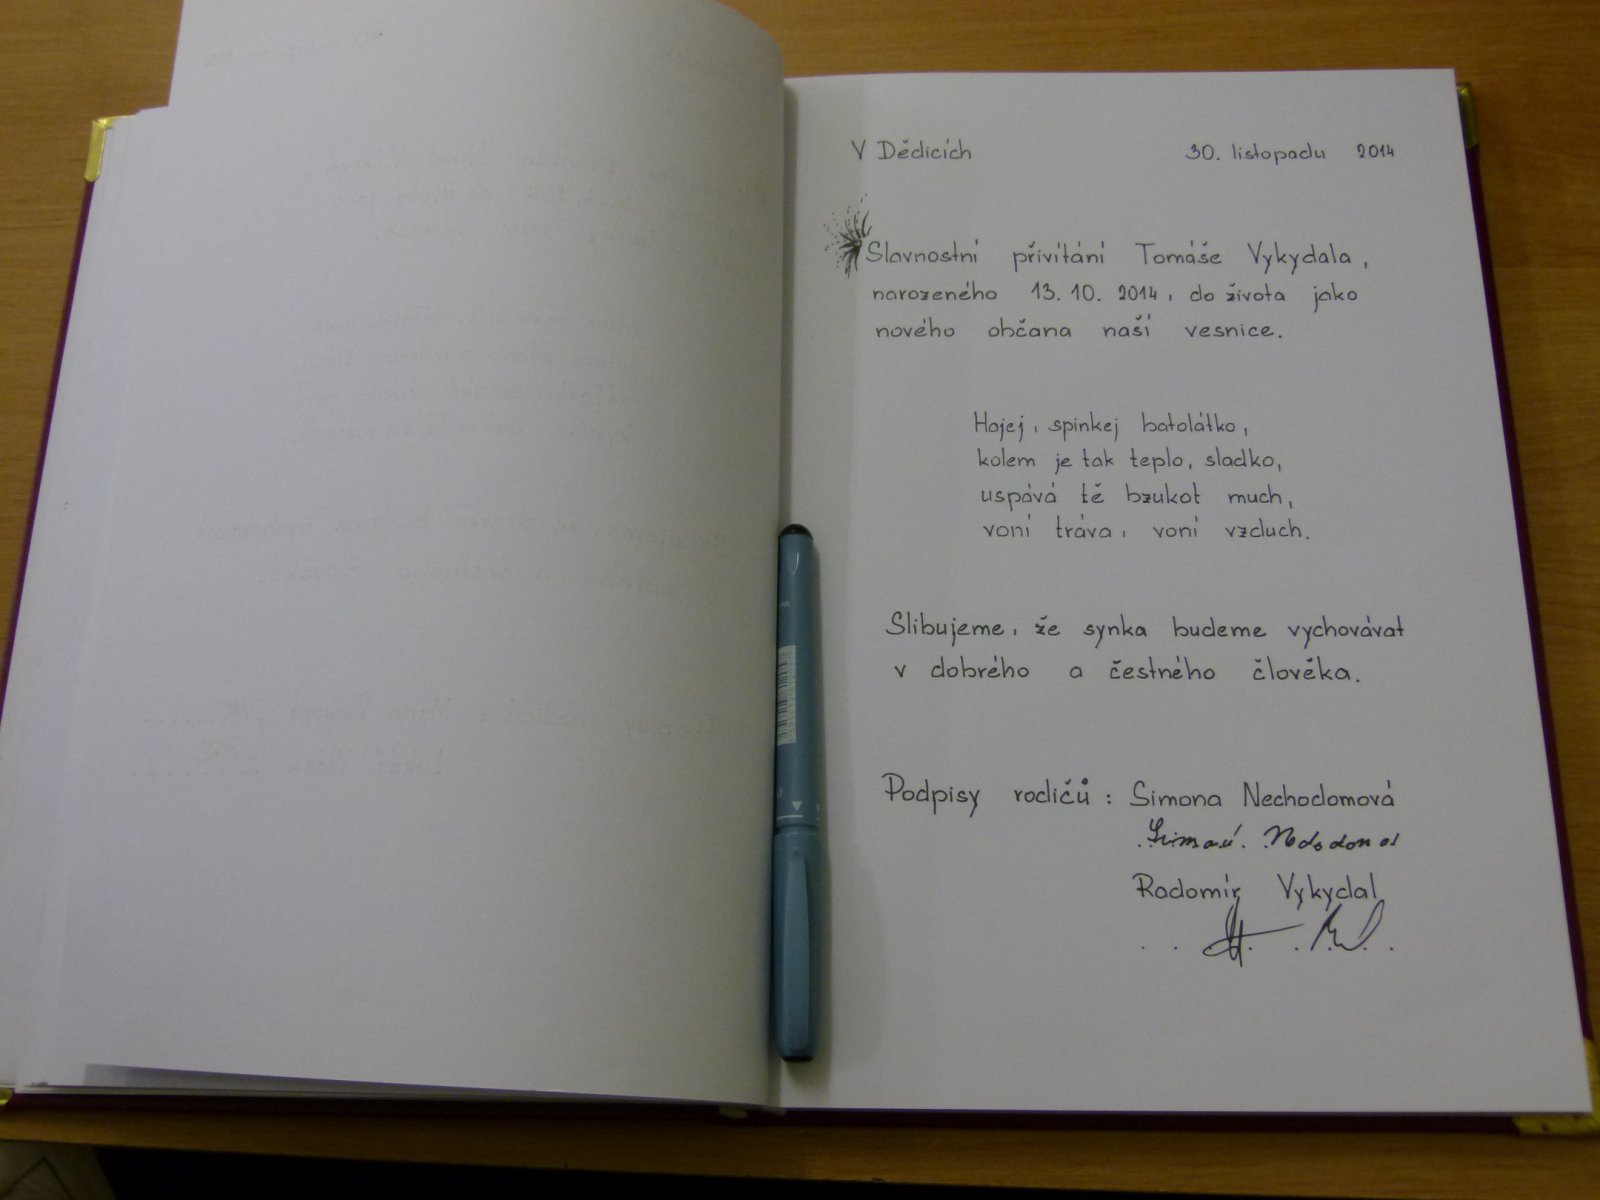 V Dědicích 30. listopadu 2014
Slavnostní přivítání Tomáše Vykydala,
narozeného 13. 10. 2014, do života jako
nového občana naší vesnice.
Hajej, spinkej batolátko,
kolem je tak teplo, sladko,
uspává tě bzukot much,
voní tráva, voní vzduch.
Slibujeme, že synka budeme vychovávat
v dobrého a čestného člověka.
Podpisy rodičů: Simona Nechodomová
Radomír Vykydal